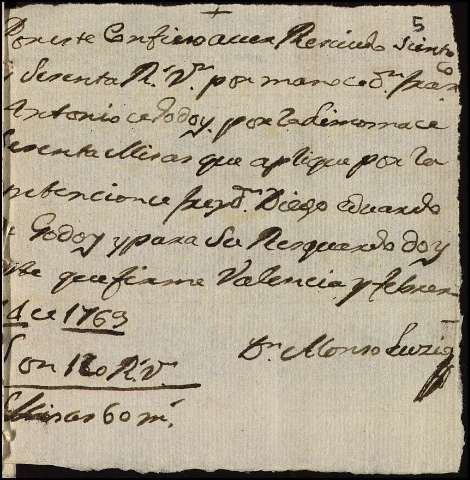 +
5
Por este Confieso aver Reciuido Siento
y Sesenta Rs. Vn. por mano de Dn. Fran.co
Antonio de Godoy, por la Limosna de
Sesenta Misas que aplique por la
yntencion de Dn. Diego Eduardo
de Godoy y para Su Resguardo doy
este que firme Valencia y febrer
de 1769
Dn. Alonso
Son Rs. Vn.
Misas 60 ms.